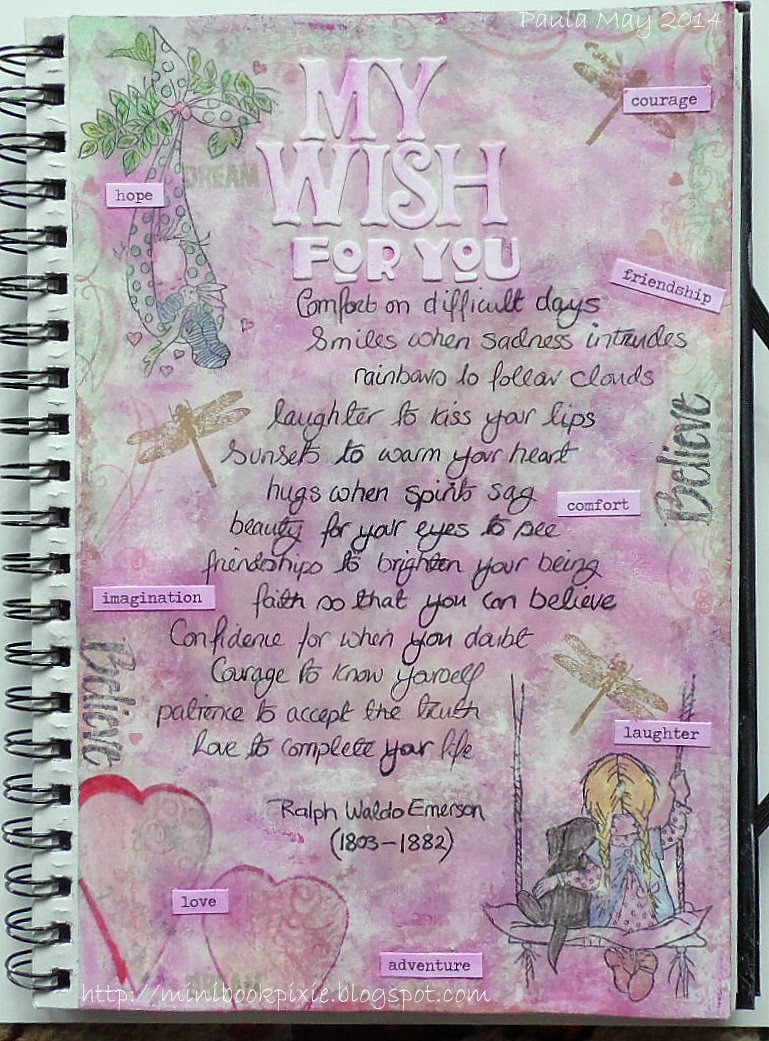 Paula May 2014
MY
WISH
FOR YOU
courage
hope
DREAM
friendship
Comfort on difficult days
Smiles when sadness intrudes
rainbows to follow clouds
laughter to kiss your lips
Sunsets to warm your heart
hugs when spirits sag
comfort
Believe
beauty for your eyes to see
friendships to brighten your being
imagination
faith so that you can believe
Confidence for when you doubt
Believe
Courage to know yourself
patience to accept the truth
laughter
Love to complete your life
Ralph Waldo Emerson
(1803-1882)
love
adventure
http://minibookpixie.blogspot.com